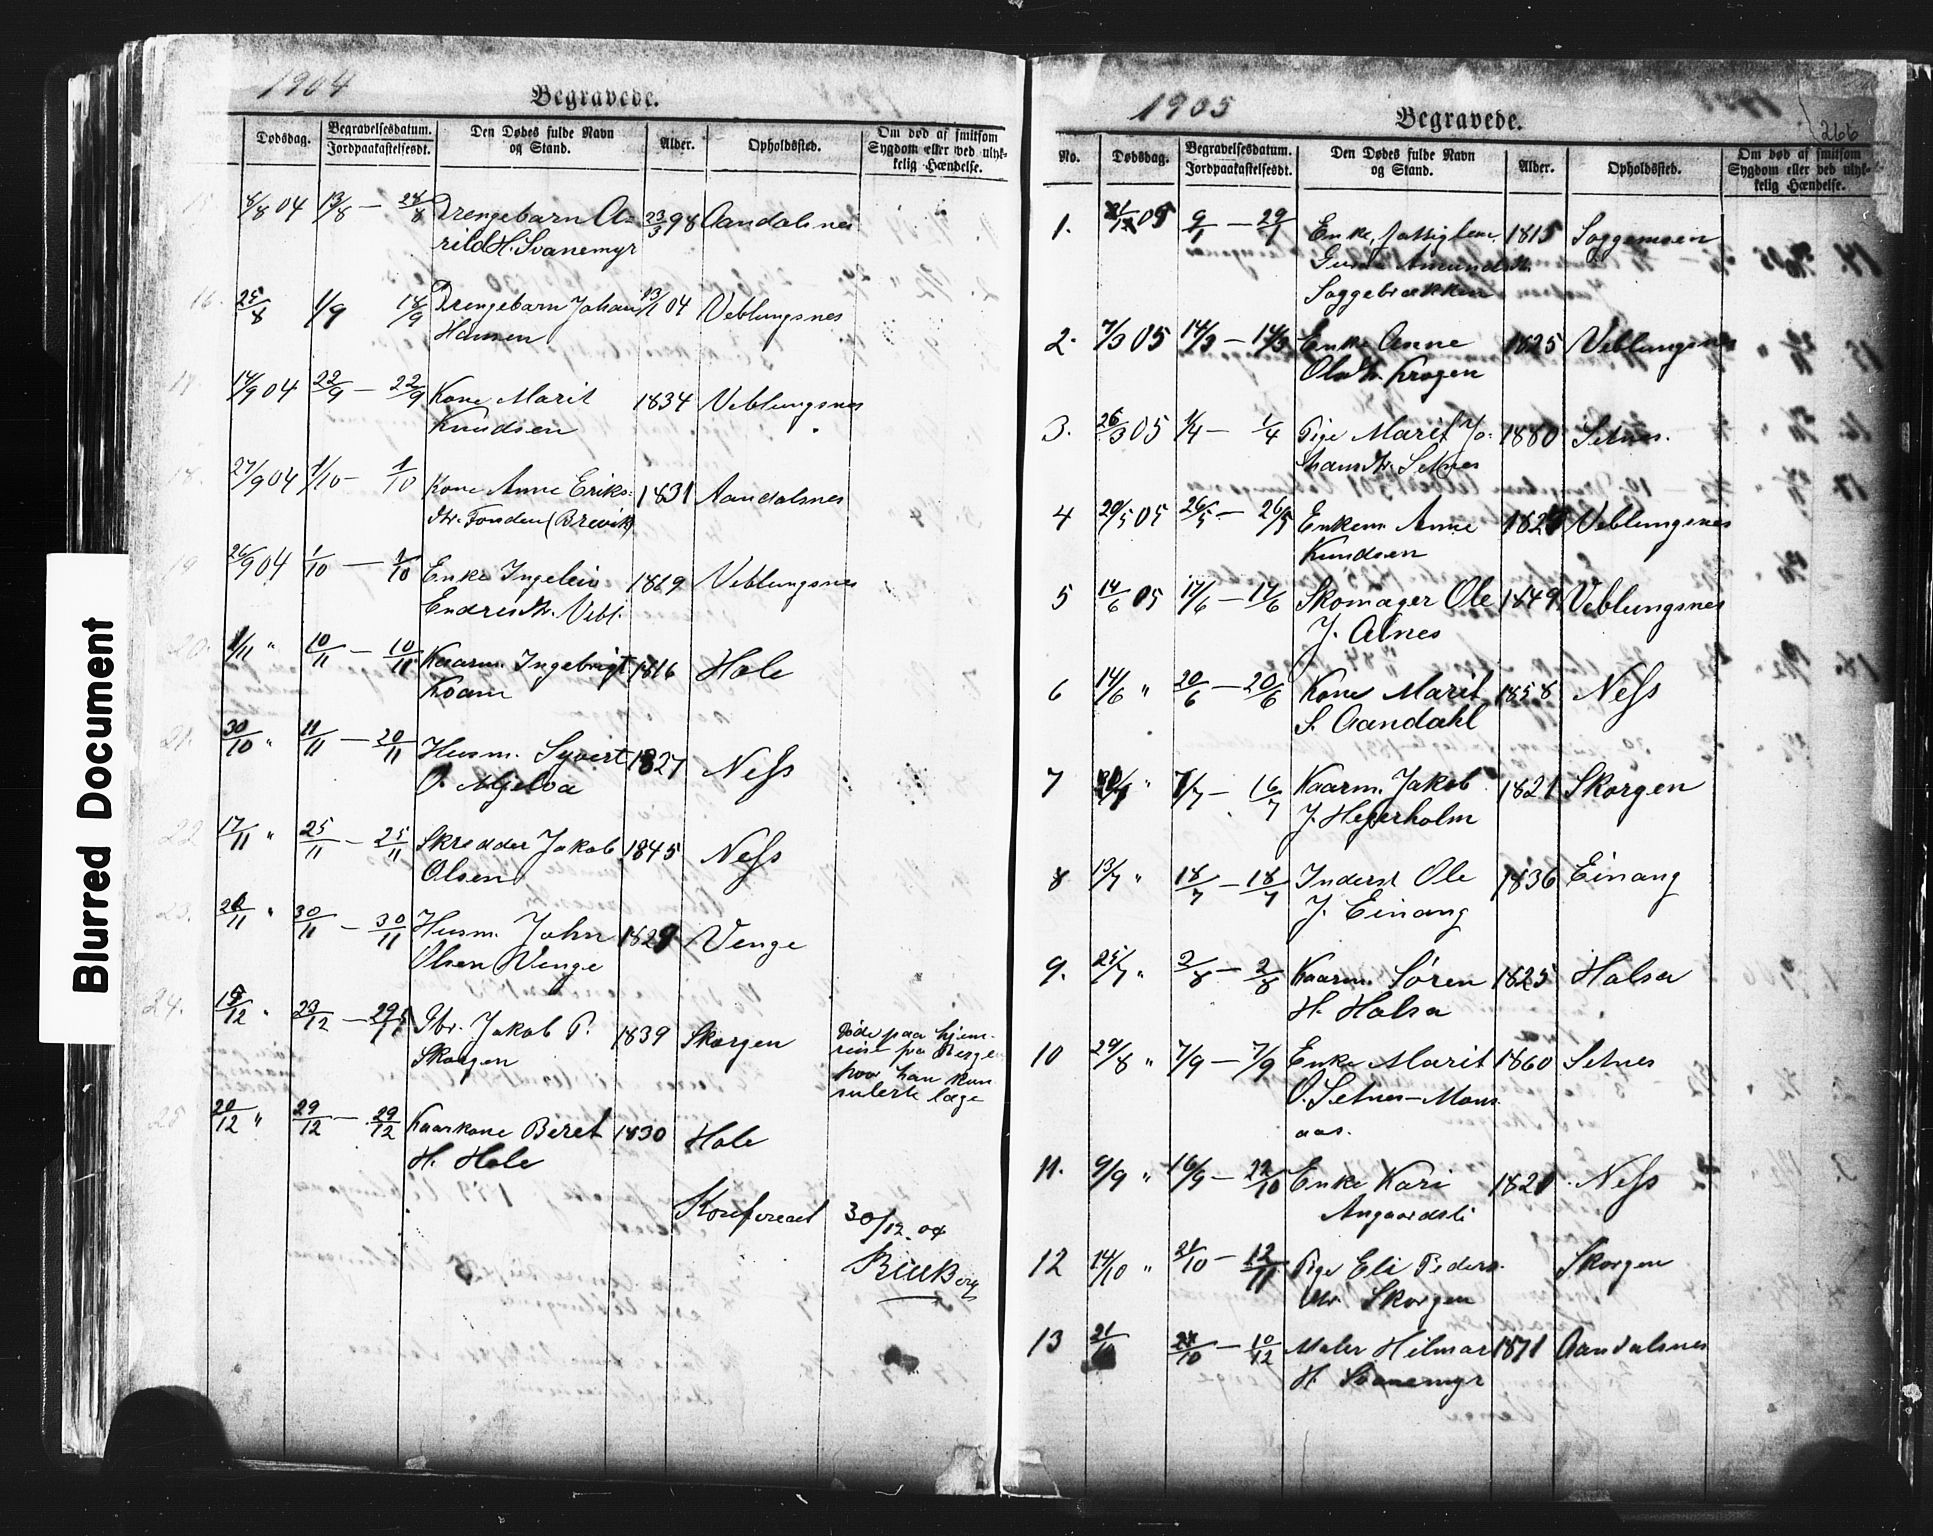 1904
Begravede.
Dødsdag.
Begravelsesdatum.
Jordpaakastelsesdt.
Den Dødes fulde Navn
og Stand.
Alder.
Opholdssted.
Om død af smitsom
Sygdom eller ved ulyk-
kelig Hændelse.
15. 8/8 04 13/8 — 28/8 Drengebarn A- 23/3 98 Aandalsnes
rild H. Svanemyr
16. 25/8 1/9 18/9 Drengebarn Johan 13/1 04 Veblungsnes
Hansen
17. 14/9 04 22/9 — 22/9 Kone Marit 1834 Veblungsnes
Knudsen
18. 27/9 04 1/10 - 1/10 Kone Anne Eriks- 1831 Aandalsnes
dtr. Fonden (Brevik)
19. 26/9 04 1/10 — 1/10 Enke Ingeleiv 1869 Veblungsnes
Endresdtr. Vebl.
20. 1/11 " 10/11 — 10/11 Kaarm. Ingebrigt 1816 Hole
Koam
21. 30/10 " 11/11 — 20/11 Husm. Syvert 1827 Ness
O. Mjelva
22. 17/11 " 25/11 — 25/11 Skredder Jakob 1845 Ness
Olsen
23. 22/11 " 30/11 — 30/11 Husm. John 1829 Venge
Olsen Venge
24. 18/12 " 23/12 — Gbr. Jakob P. 1839 Skorgen
Skorgen
Døde paa hjem-
reise fra Bergen
hvor han kon-
sulerte læge
25. 20/12 " 29/12 — 29/12 Kaarkone Beret 1830 Hole
H. Hole
Konfereret 30/12 04
1905
Begravede.
266
No.
Dødsdag.
Begravelsesdatum.
Jordpaakastelsesdt.
Den Dødes fulde Navn
og Stand.
Alder.
Opholdssted.
Om død af smitsom
Sygdom eller ved ulyk-
kelig Hændelse.
1. 05 9/1 — 29/1 Enke, fattiglem 1815 Soggemoen
Amundsdt.
Soggebrækken
2. 7/3 05 14/3 — 14/3 Enke Anne 1825 Veblungsnes
Olsdtr. Krogen
3. 26/3 05 1/4 — 1/4 Pige Marit Jo- 1880 Setnes.
hansdtr. Setnes
4 20/5 05 26/5 — 26/5 Enkem. Arne Veblungsnes
Knudsen
5 14/6 05 17/6 — 17/6 Skomager Ole 1849 Veblungsnes
J. Alnes
6 14/6 " 20/6 — 20/6 Kone Marit 1858 Ness
S. Aandahl
7 " 7/7 — 16/7 Kaarm. Jakob 1821 Skorgen
J. Hegerholm
8 13/7 " 18/7 — 18/7 Inderst Ole 1836 Einang
J. Einang
9. 25/7 " 2/8 — 2/8 Kaarm. Søren 1825 Halsa
H. Halsa
10 29/8 " 7/9 — 7/9 Enke Marit 1860 Setnes
O. Setnes - Mons-
aas.
11. 9/9 " 16/9 — 22/10 Enke Kari 1821 Ness
Aagaardsli
12 14/10 " 21/10 — 12/11 Pige Eli Peders- Skorgen
dtr. Skorgen
13 21/10 28/10 — 10/12 Maler Hilmar 1871 Aandalsnes
H. Svanemyr
Blurred Document